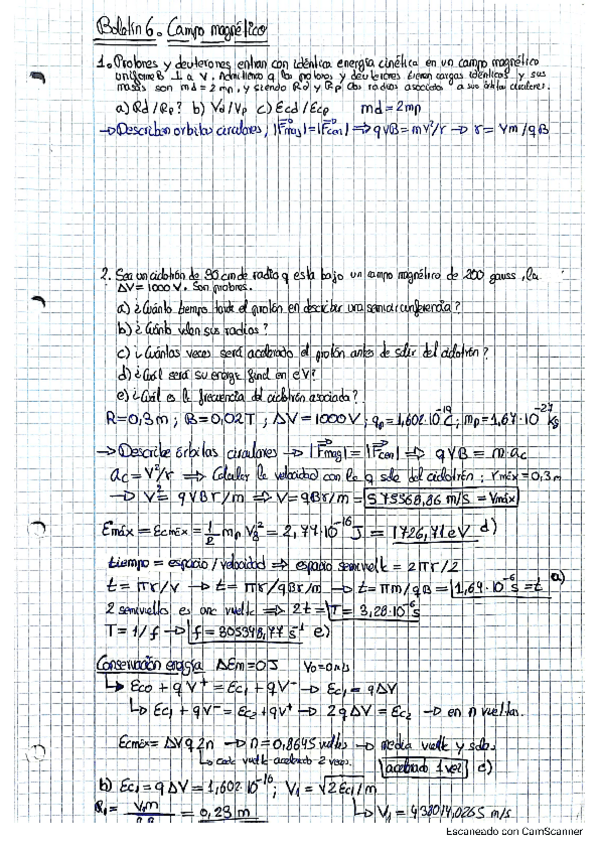 Boletín 6. Campo magnético
1. Protones y deuterones entran con idéntica energía cinética en un campo magnético
uniforme B ⊥ a V. Admitiendo q los protones y deuterones tienen cargas idénticas y sus
masas son md = 2mp, y siendo Rd y Rp los radios asociados a sus órbitas circulares.
a) Rd/Rp? b) Vd/Vp c) Ecd/Ecp md = 2mp
→ Describen órbitas circulares; |Fmag| = |Fcen| ⇒ qVB = mV²/r → r = Vm/qB
2. Sea un ciclotrón de 30 cm de radio q está bajo un campo magnético de 200 gauss, la
ΔV = 1000 V. Son protones.
a) ¿Cuánto tiempo tarda el protón en describir una semicircunferencia?
b) ¿Cuánto valen sus radios?
c) ¿Cuántas veces será acelerado el protón antes de salir del ciclotrón?
d) ¿Cuál será su energía final en eV?
e) ¿Cuál es la frecuencia del ciclotrón asociada?
R = 0,3 m; B = 0,02 T; ΔV = 1000 V; qp = 1,602·10⁻¹⁹ C; mp = 1,67·10⁻²⁷ kg
→ Describe órbitas circulares → |Fmag| = |Fcen| ⇒ qVB = m·ac
ac = V²/r ⇒ Calcular la velocidad con la q sale del ciclotrón; rmáx = 0,3 m
→ V² = qVBr/m ⇒ V = qBr/m = 575568,86 m/s = Vmáx
Emáx = Ecmáx = 1/2 mp V² = 2,77·10⁻¹⁶ J = 1726,71 eV d)
tiempo = espacio/velocidad ⇒ espacio semivuelt = 2πr/2
t = πr/v → t = πr/qBr/m → t = πm/qB = 1,64·10⁻⁶ s = t a)
2 semivuelta es una vuelta ⇒ 2t = T = 3,28·10⁻⁶ s
T = 1/f → f = 305348,77 s⁻¹ e)
Conservación energía ΔEm = 0 J V0 = 0 m/s
↳ Ec0 + qV⁺ = Ec1 + qV⁻ → Ec1 = qΔV
↳ Ec1 + qV⁻ = Ec2 + qV⁺ → 2qΔV = Ec2 → en n vueltas.
Ecmáx = ΔVq2n → n = 0,8645 vueltas → media vuelta y sale.
↳ cada vuelta acelerado 2 veces. acelerado 1 vez c)
b) Ec1 = qΔV = 1,602·10⁻¹⁶; V1 = √2Ec1/m
R1 = V1m = 0,23 m ↳ V1 = 438014,0265 m/s
Escaneado con CamScanner